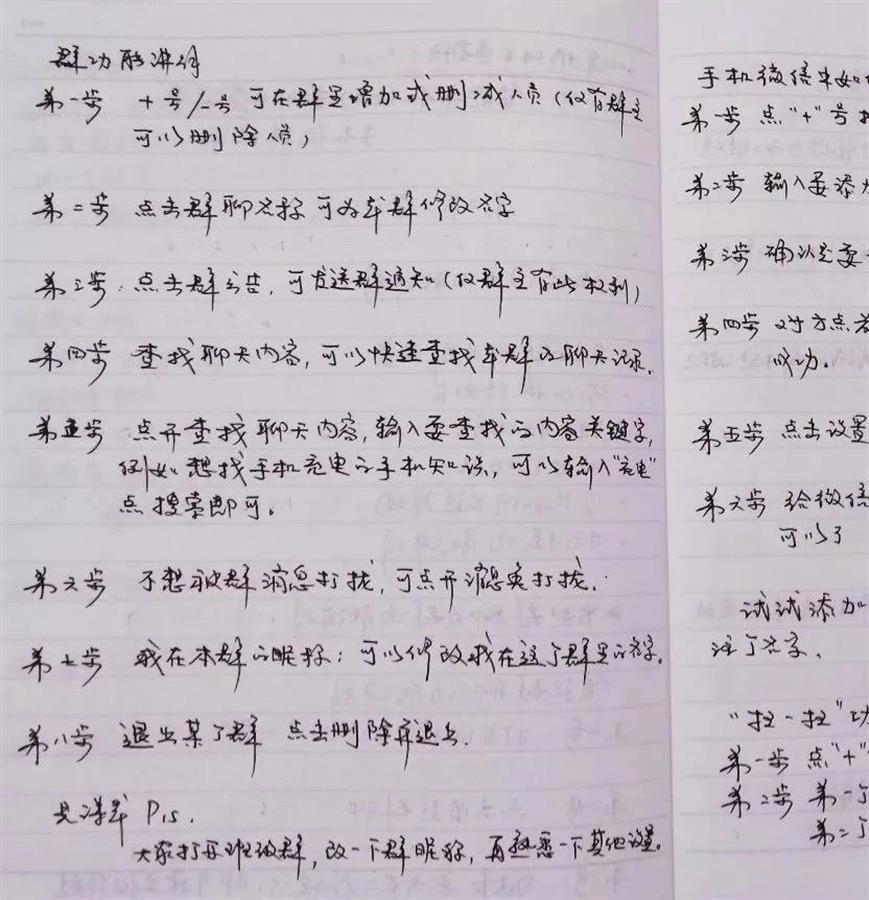 群功能讲解
第一步 十号/一号可在群里增加或删减人员(仅有群主
可以删除人员)
第二步 点击群聊名称可为本群修改名字
第三步:点击群公告,可发送群通知(仅群主有此权利)
第四步 查找聊天内容,可以快速查找本群的聊天记录.
第五步 点开查找聊天内容,输入要查找的内容关键字,
例如想找手机充电的手机知识,可以输入"充电"
点搜索即可。
第六步 不想被群消息打扰,可点开消息免打扰.
第七步 我在本群的昵称:可以修改我在这个群里的名字。
第八步 退出某个群 点击删除并退出.
见课本 P15.
大家打开班级群,改一下群昵称,再熟悉一下其他设置。
手机微信中如
第一步 点"+"号
第二步 输入要添
第三步 确认是要
第四步 对方点
成功.
第五步 点击设置
第六步 给微信
可以了
试试添加
注个名字.
"扫一扫"功
第一步 点"+"
第二步 第一个
第二个